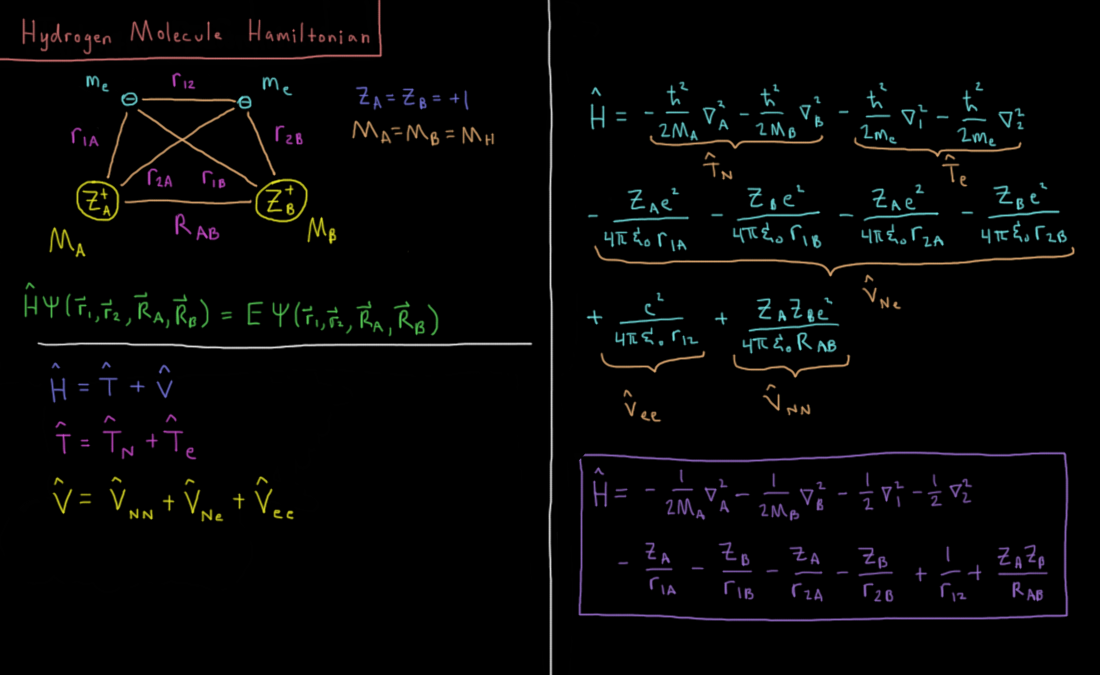 Hydrogen Molecule Hamiltonian
mₑ r₁₂ mₑ
Z_A = Z_B = +1
M_A = M_B = M_H
r₁A r₂B
r₂A r₁B
Z_A⁺ Z_B⁺
R_AB
M_A M_B
ĤΨ(r⃗₁, r⃗₂, R⃗_A, R⃗_B) = E Ψ(r⃗₁, r⃗₂, R⃗_A, R⃗_B)
Ĥ = T̂ + V̂
T̂ = T̂_N + T̂_e
V̂ = V̂_NN + V̂_Ne + V̂_ee
Ĥ = - ħ²/2M_A ∇²_A - ħ²/2M_B ∇²_B - ħ²/2mₑ ∇²₁ - ħ²/2mₑ ∇²₂
T̂_N T̂_e
- Z_A e²/4πε₀r₁A - Z_B e²/4πε₀r₁B - Z_A e²/4πε₀r₂A - Z_B e²/4πε₀r₂B
V̂_Ne
+ e²/4πε₀r₁₂ + Z_A Z_B e²/4πε₀R_AB
V̂_ee V̂_NN
Ĥ = - 1/2M_A ∇²_A - 1/2M_B ∇²_B - 1/2 ∇²₁ - 1/2 ∇²₂
- Z_A/r₁A - Z_B/r₁B - Z_A/r₂A - Z_B/r₂B + 1/r₁₂ + Z_A Z_B/R_AB